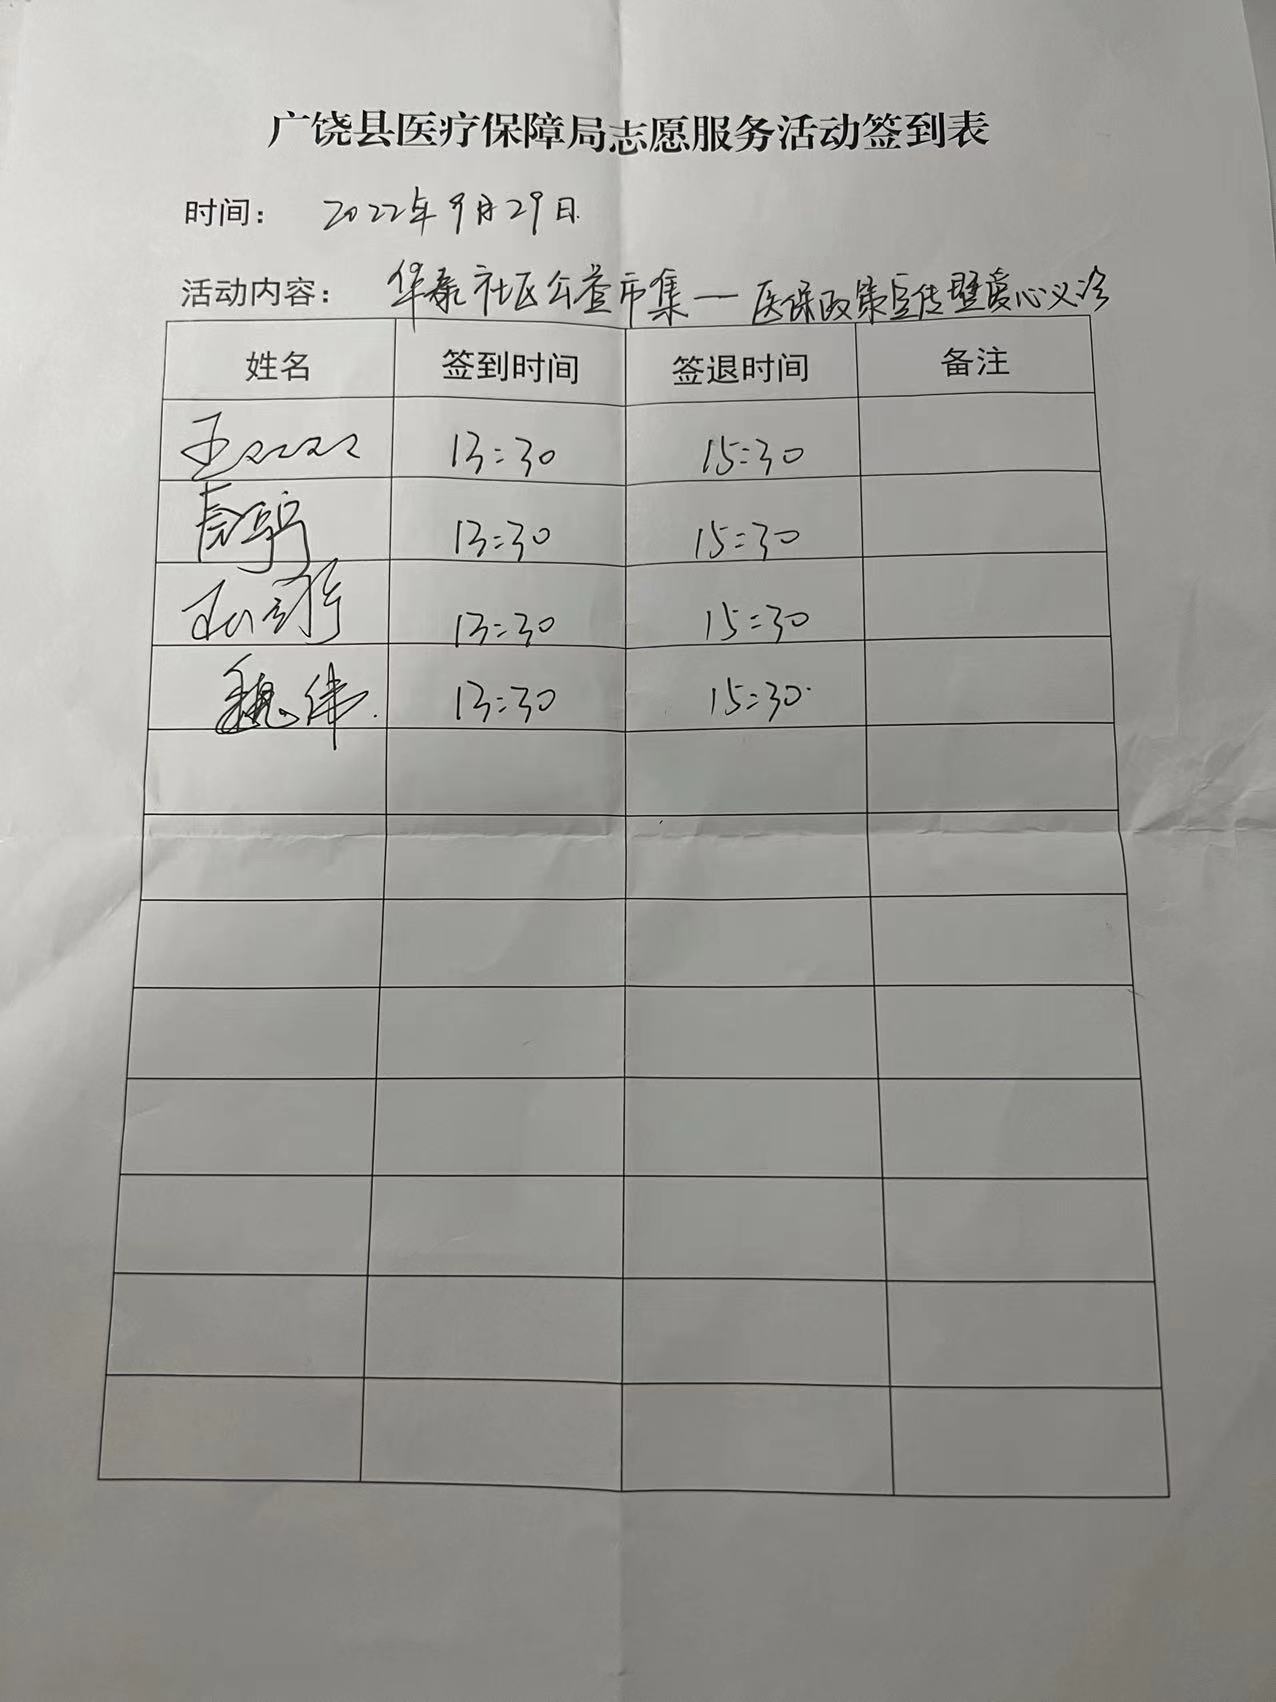 广饶县医疗保障局志愿服务活动签到表
时间： 2022年9月29日
活动内容： 华泰社区公益市集—医保政策宣传暨爱心义诊
姓名 签到时间 签退时间 备注
王双双 13:30 15:30
13:30 15:30
13:30 15:30
魏伟 13:30 15:30